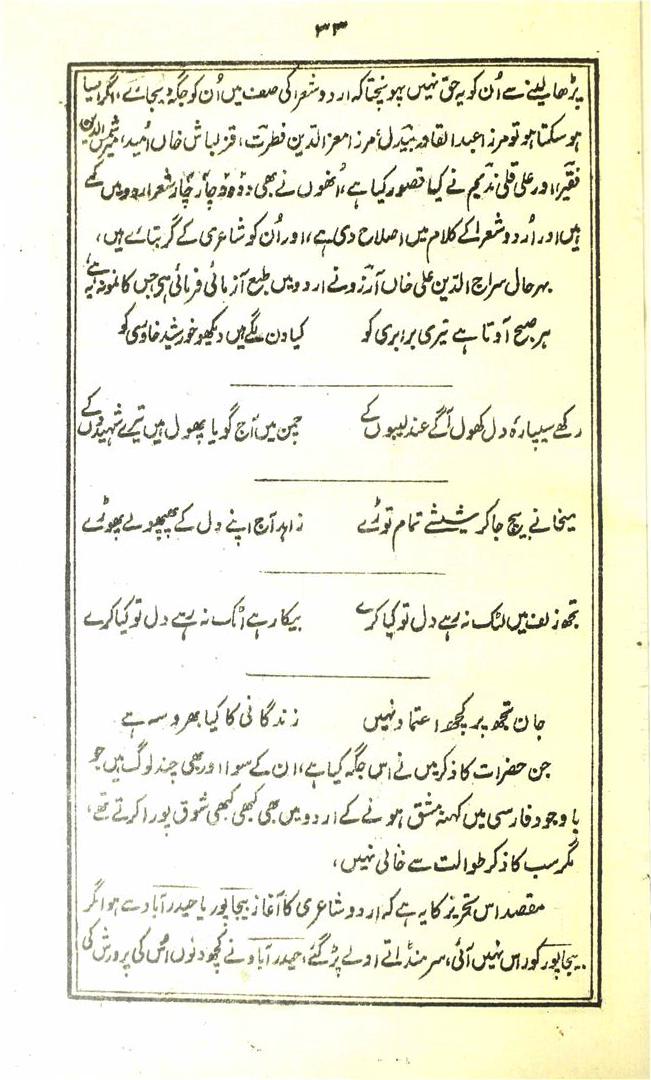 ۳۳
پڑھا لینے سے اُن کو یہ حق نہیں پہونچتا کہ اردو شعرا کی صف میں اُن کو جگہ دیجائے، اگر ایسا
ہو سکتا ہو تو مرزا عبدالقادر بیدل، مرزا معز الدین فطرت، قزلباش خاں اُمید، شمس الدین
فقیر، اور علی قلی ندیم نے کیا قصور کیا ہے، اُنھوں نے بھی دو دو چار چار شعر اردو میں کہے
ہیں اور اُردو شعرا کے کلام میں اصلاح دی ہے، اور اُن کو شاعری کے گر بتائے ہیں،
بہرحال سراج الدین علی خاں آرزو نے اردو میں طبع آزمائی فرمائی ہی جس کا نمونہ یہ ہے،
ہر صبح آوتا ہے تیری برابری کو کیا دن لگے ہیں دیکھو خورشید خاوری کو
رکھے سیپارۂ دل کھول آگے عندلیبوں کے چمن میں آج گویا پھول ہیں تیرے شہیدوں کے
میخانے بیچ جا کر شیشے تمام توڑے زاہد آج اپنے دل کے پھپھولے پھوڑے
تجھ زلف میں لٹک نہ رہے دل تو کیا کرے بیکار ہے اٹک نہ رہے دل تو کیا کرے
جان تجھ پر کچھ اعتماد نہیں زندگانی کا کیا بھروسہ ہے
جن حضرات کا ذکر میں نے اس جگہ کیا ہے، ان کے سوا اور بھی چند لوگ ہیں جو
باوجود فارسی میں کہنہ مشق ہونے کے اردو میں بھی کبھی کبھی شوق پورا کرتے تھے،
مگر سب کا ذکر طوالت سے خالی نہیں،
مقصد اس تحریر کا یہ ہے کہ اردو شاعری کا آغاز بیجا پور یا حیدرآباد سے ہوا مگر
بیجاپور کو راس نہیں آئی، سر منڈاتے اولے پڑ گئے، حیدرآباد نے کچھ دنوں اُس کی پرورش کی